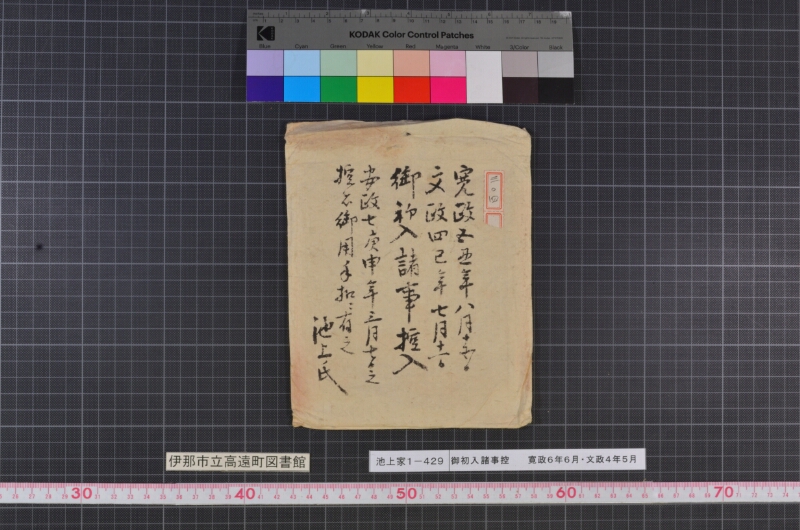 KODAK Color Control Patches
Blue Cyan Green Yellow Red Magenta White 3/Color Black
寛政五丑年八月十五日
文政四巳年七月十六日
御初入諸事控入
安政七庚申年三月十七日之
控者御用手扣ニ有之
池上氏
伊那市立高遠町図書館
池上家1-429 御初入諸事控 寛政6年6月・文政4年5月
30 40 50 60 70